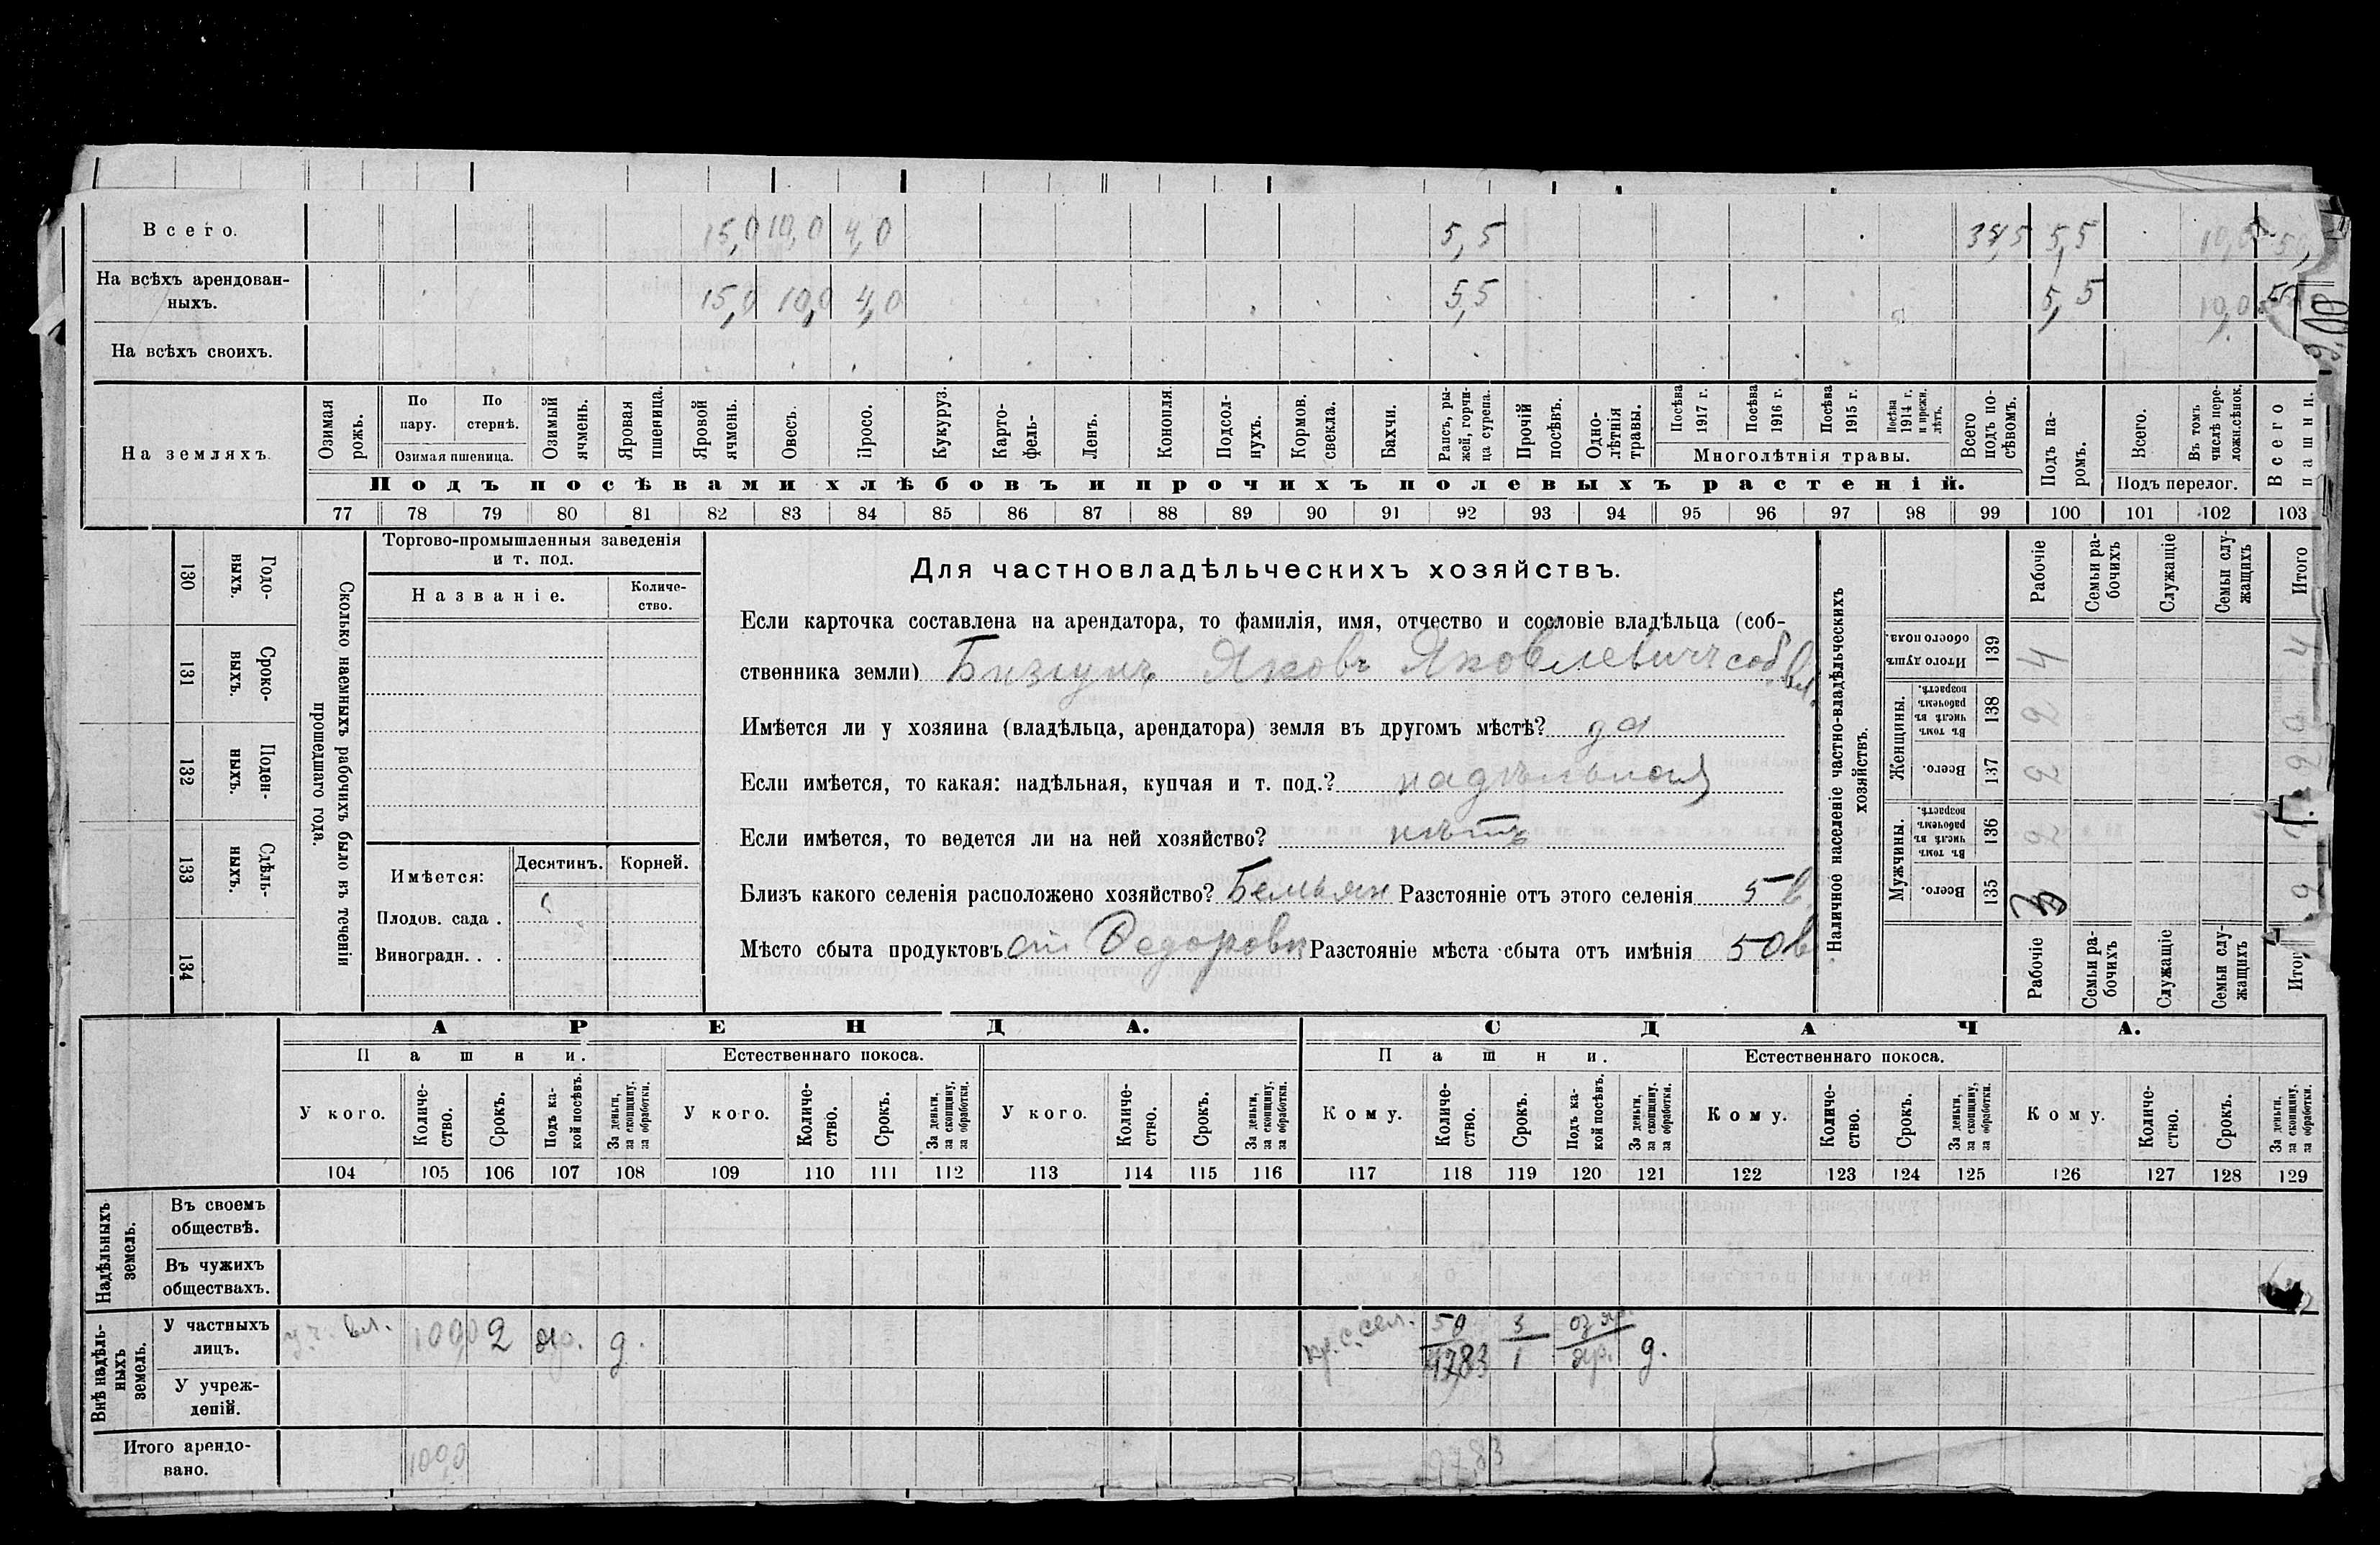 Всего. 15,0 10,0 4,0 5,5 5,5
На всѣхъ арендован-
ныхъ. 15,0 10,0 4,0 5,5 5,5 10,0
На всѣхъ своихъ.
На земляхъ.
Озимая рожь.
По пару.
По стернѣ.
Озимая пшеница.
Озимый ячмень.
Яровая пшеница.
Яровой ячмень.
Овесъ.
Просо.
Кукуруз.
Карто-
фель-
Ленъ.
Конопля.
Подсол-
нухъ.
Кормов.
свекла.
Бахчи.
Рапсъ, ры-
жей, горчи-
ца сурепа.
Прочій
посѣвъ.
Одно-
лѣтнія
травы.
Посѣва
1917 г.
Посѣва
1916 г.
Посѣва
1915 г.
Посѣва
1914 г.
и прежн.
лѣтъ.
Многолѣтнія травы.
Всего
подъ по-
сѣвомъ.
Подъ посѣвами хлѣбовъ и прочихъ полевыхъ растеній.
Подъ па-
ромъ.
Всего.
Въ томъ
числѣ пере-
ложн.сѣнок.
Подъ перелог.
Всего
пашни.
77 78 79 80 81 82 83 84 85 86 87 88 89 90 91 92 93 94 95 96 97 98 99 100 101 102 103
Сколько наемныхъ рабочихъ было въ теченіи
прошедшаго года.
Годо-
выхъ.
130
Сроко-
выхъ.
131
Поден-
ныхъ.
132
Сдѣль-
ныхъ.
133
134
Торгово-промышленныя заведенія
и т. под.
Названіе.
Количе-
ство.
Имѣется:
Десятинъ. Корней.
Плодов. сада .
Виноградн. . .
Для частновладѣльческихъ хозяйствъ.
Если карточка составлена на арендатора, то фамилія, имя, отчество и сословіе владѣльца (соб-
ственника земли) Яковъ Яковлевичъ
Имѣется ли у хозяина (владѣльца, арендатора) земля въ другомъ мѣстѣ? да
Если имѣется, то какая: надѣльная, купчая и т. под.? надѣльная
Если имѣется, то ведется ли на ней хозяйство? нѣтъ
Близъ какого селенія расположено хозяйство? Разстояніе отъ этого селенія 5 в.
Мѣсто сбыта продуктовъ ст. Федоровк Разстояніе мѣста сбыта отъ имѣнія 50 в.
Наличное населеніе частно-владѣльческихъ
хозяйствъ.
Рабочіе
Семьи ра-
бочихъ
Служащіе
Семьи слу-
жащихъ
Итого
Итого душъ
обоего пола.
139 4
Женщины.
Въ томъ
числѣ въ
рабочемъ
возрастѣ.
138 2
Всего.
137 2
Мужчины.
Въ томъ
числѣ въ
рабочемъ
возрастѣ.
136 2
Всего.
135
Рабочіе
Семьи ра-
бочихъ
Служащіе
Семьи слу-
жащихъ
АРЕНДА. СДАЧА.
Пашни. Естественнаго покоса. Пашни. Естественнаго покоса.
У кого.
Количе-
ство.
Срокъ.
Подъ ка-
кой посѣвъ.
За деньги,
за скопщину,
за обработки.
У кого.
Количе-
ство.
Срокъ.
За деньги,
за скопщину,
за обработки.
У кого.
Количе-
ство.
Срокъ.
За деньги,
за скопщину,
за обработки.
Кому.
Количе-
ство.
Срокъ.
Подъ ка-
кой посѣвъ.
За деньги,
за скопщину,
за обработки.
Кому.
Количе-
ство.
Срокъ.
За деньги,
за скопщину,
за обработки.
Кому.
Количе-
ство.
Срокъ.
За деньги,
за скопщину,
за обработки.
104 105 106 107 108 109 110 111 112 113 114 115 116 117 118 119 120 121 122 123 124 125 126 127 128 129
Надѣльныхъ
земель.
Въ своемъ
обществѣ.
Въ чужихъ
обществахъ.
Внѣ надѣль-
ныхъ
земель.
У частныхъ
лицъ. 100,0 2 яр. д. 50 3 оз яр.
1 яр. д.
У учреж-
деній.
Итого арендо-
вано. 100,0